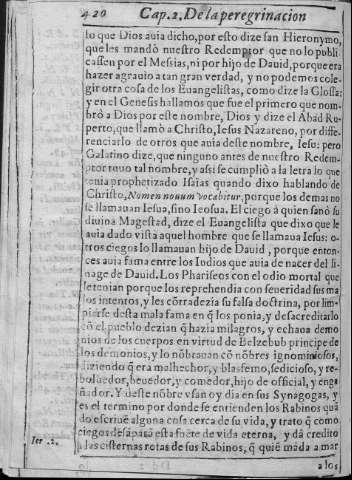 420 Cap.2. De la peregrinacion
lo que Dios auia dicho, por esto dize san Hieronymo,
que les mandò nuestro Redemptor que no lo publi
cassen por el Messias, ni por hijo de Dauid, porque era
hazer agrauio a tan gran verdad, y no podemos cole-
gir otra cosa de los Euangelistas, como dize la Glossa:
y en el Genesis hallamos que fue el primero que nom-
brò a Dios por este nombre, Dios y dize el Abad Ru-
perto, que llamò a Christo, Iesus Nazareno, por diffe-
renciarlo de otros que auia deste nombre, Iesu: pero
Galatino dize, que ninguno antes de nuestro Redem-
ptor tuuo tal nombre, y assi se cumpliò a la letra lo que
tenia prophetizado Isaias quando dixo hablando de
Christo, Nomen nouum vocabitur, porque los demas no
se llamauan Iesua, sino Ieosua. El ciego à quien sanò su
diuina Magestad, dize el Euangelista que dixo que le
auia dado vista aquel hombre que se llamaua Iesus: o-
tros ciegos lo llamauan hijo de Dauid, porque enton-
ces auia fama entre los Iudios que auia de nacer del li-
nage de Dauid. Los Phariseos con el odio mortal que
le tenian porque los reprehendia con seueridad sus ma
los intentos, y les cõrradezia su falsa doctrina, por lim-
piarse desta mala fama en q̃ los ponia, y desacreditarlo
cõ el pueblo dezian q̃ hazia milagros, y echaua demo
nios de los cuerpos en virtud de Belzebub principe de
los demonios, y lo nõbrauan cõ nõbres ignominiosos,
diziendo q̃ era malhechor, y blasfemo, sedicioso, y re-
boluedor, beuedor, y comedor, hijo de official, y enga
ñador. Y deste nõbre vsan oy dia en sus Synagogas, y
es el termino por donde se entienden los Rabinos quã
do escriuẽ alguna cosa cerca de su vida, y trato q̃ como
ciegos desãparã esta fuẽte de vida eterna, y dã credito
Ier .2. a las cisternas rotas de sus Rabinos, q̃ quiẽ mãda a mar
a los